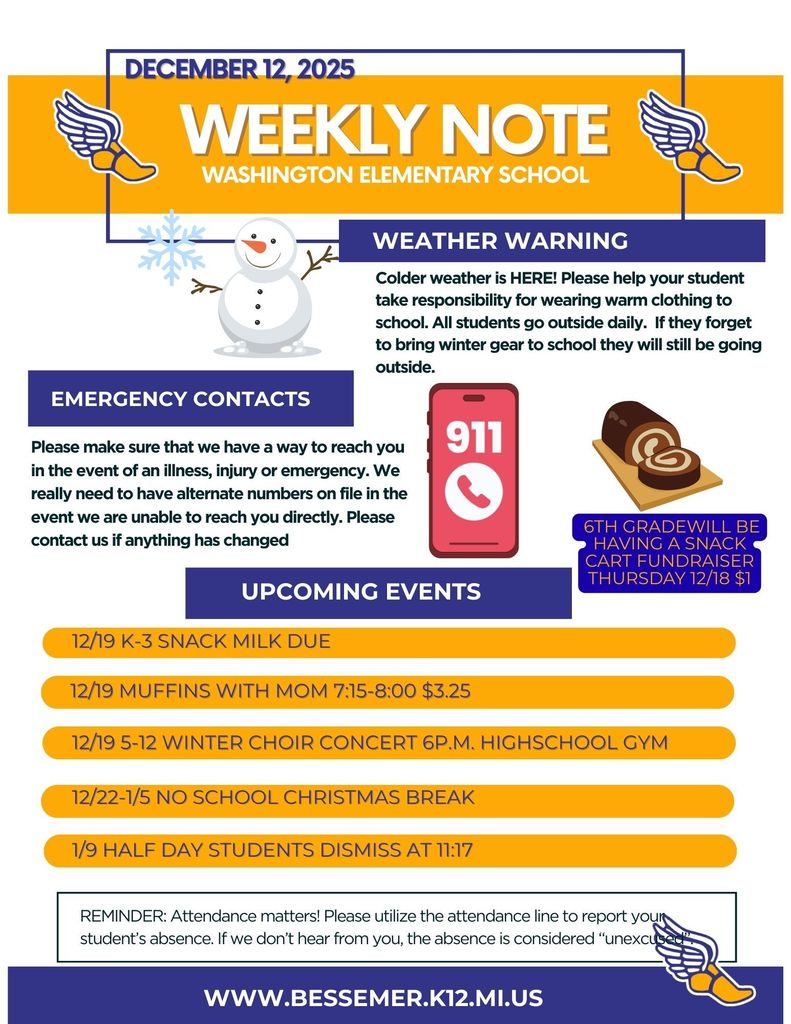 DECEMBER 12, 2025
WEEKLY NOTE
WASHINGTON ELEMENTARY SCHOOL
WEATHER WARNING
Colder weather is HERE! Please help your student
take responsibility for wearing warm clothing to
school. All students go outside daily. If they forget
to bring winter gear to school they will still be going
outside.
EMERGENCY CONTACTS
Please make sure that we have a way to reach you
in the event of an illness, injury or emergency. We
really need to have alternate numbers on file in the
event we are unable to reach you directly. Please
contact us if anything has changed
911
6TH GRADEWILL BE
HAVING A SNACK
CART FUNDRAISER
THURSDAY 12/18 $1
UPCOMING EVENTS
12/19 K-3 SNACK MILK DUE
12/19 MUFFINS WITH MOM 7:15-8:00 $3.25
12/19 5-12 WINTER CHOIR CONCERT 6P.M. HIGHSCHOOL GYM
12/22-1/5 NO SCHOOL CHRISTMAS BREAK
1/9 HALF DAY STUDENTS DISMISS AT 11:17
REMINDER: Attendance matters! Please utilize the attendance line to report your
student's absence. If we don't hear from you, the absence is considered "unexcused".
WWW.BESSEMER.K12.MI.US